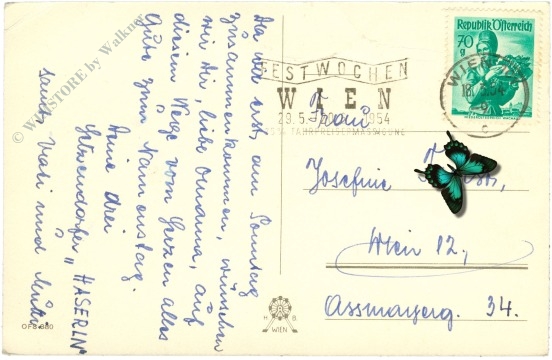 © WALSTORE by Walkner
Da wir erst am Sonntag
zusammenkommen, wünschen
wir Dir, liebe Omama, auf
diesem Wege vom Herzen alles
Gute zum Namenstag.
Deine drei
Getzendorfer "HASERLN"
samt Vati und Mutti
FESTWOCHEN
WIEN
1954
33⅓% FAHRPREISERMÄSSIGUNG
REPUBLIK ÖSTERREICH
70
g
WIEN
18. 54
c
Frau
Josefine
Wien 12.,
Assmayerg. 34.
H B
WIEN
OFB 880